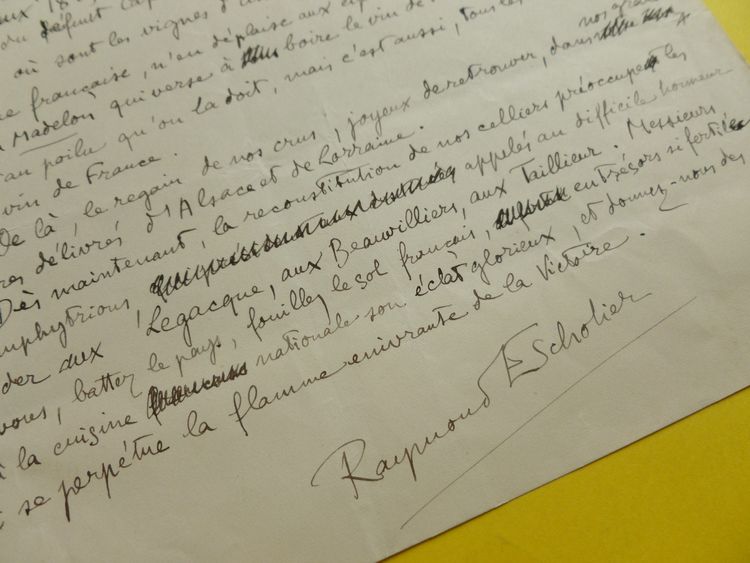 du défunt
où sont les vignes d'
française, n'en déplaise aux
Madelon qui verse à boire le vin de
au poilu qu'on la doit, mais c'est aussi, tous les
vin de France.
De là, le regain de nos crus, joyeux de retrouver, dans nos
res délivrés d'Alsace et de Lorraine.
Dès maintenant, la reconstitution de nos celliers préoccupe les
mphytrions, appelés au difficile honneur
der aux Legacque, aux Beauvilliers, aux Taillieur. Messieurs
vous, battez le pays, fouillez le sol français, en trésors si fertile
à la cuisine nationale son éclat glorieux, et donnez-nous des
se perpétue la flamme enivrante de la Victoire.
Raymond Escholier